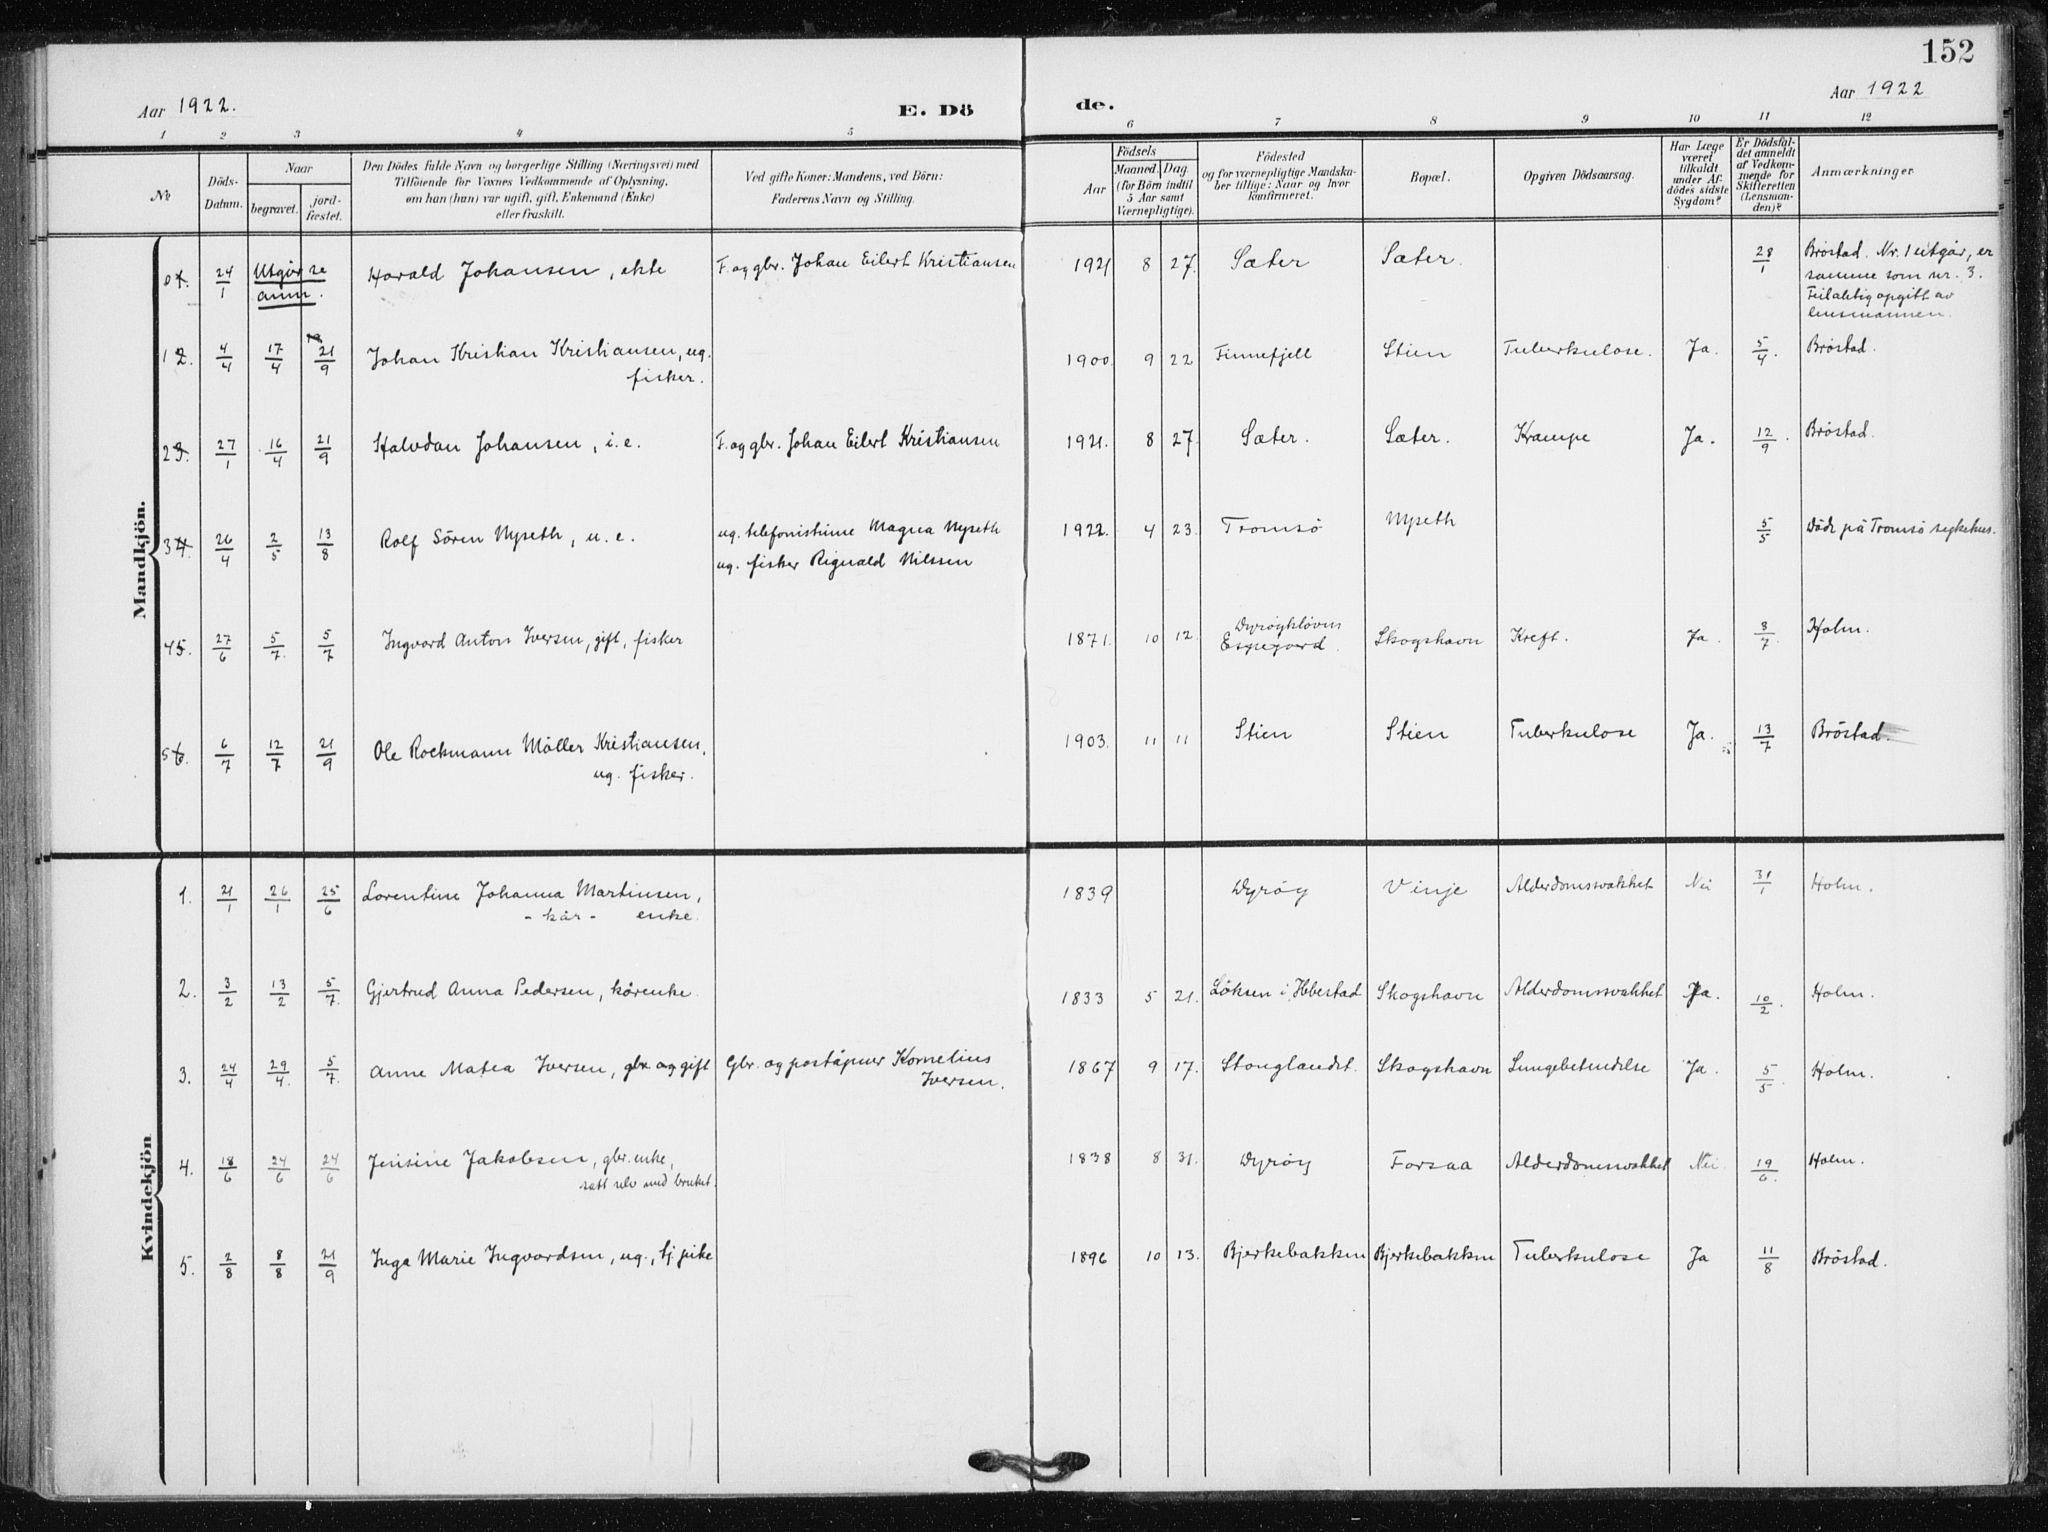 152
Aar 1922.
E. Dö
de.
Aar 1922
1 2 3 4 5 6 7 8 9 10 11 12
№
Döds-
Datum.
Naar
begravet.
jord-
fæstet.
Den Dödes fulde Navn og borgerlige Stilling (Næringsvei) med
Tilföiende for Voxnes Vedkommende af Oplysning,
om han (hun) var ugift, gift, Enkemand (Enke)
eller fraskilt.
Ved gifte Koner: Mandens, ved Börn:
Faderens Navn og Stilling.
Födsels
Aar
Maaned. Dag.
(for Börn indtil
5 Aar samt
Værnepligtige).
Födested
og for værnepligtige Mandska-
ber tillige: Naar og hvor
konfirmeret.
Bopæl.
Opgiven Dödsaarsag.
Har Læge
været
tilkaldt
under Af-
dödes sidste
Sygdom?
Er Dödsfal-
det anmeldt
af Vedkom-
mende for
Skifteretten
(Lensman-
den)?
Anmærkninger.
Mandkjön.
0 1. 24/1 Utgår se Harald Johansen, ekte F. og gbr. Johan Eilert Kristiansen 1921 8 27. Sæter Sæter. 28/1 Brøstad. Nr. 1 utgår, er
anm. samme som nr. 3.
Feilaktig opgitt av
lensmannen.
1 2. 4/4 17/4 21/9 Johan Kristian Kristiansen, ug. 1900. 9 22 Finnefjell Stien Tuberkulose. Ja. 5/4. Brøstad.
fisker.
2 3. 27/1 16/4 21/9 Halvdan Johansen, i.e. F. og gbr. Johan Eilert Kristiansen 1921. 8 27. Sæter. Sæter. Krampe Ja. 12/9 Brøstad.
3 4. 26/4 2/5 13/8 Rolf Sören Nyseth, u.e. ug. telefonistinne Magna Nyseth 1922. 4 23. Tromsø Nyseth 5/5 Död på Tromsø sykehus.
ug. fisker Rignald Nilssen
4 5. 27/6 5/7. 5/7 Ingvard Anton Iversen, gift, fisker 1871. 10 12. Dyrøykløven Skogshavn Kreft. Ja. 8/7. Holm.
Espejord.
5 6. 6/7 12/7 21/9 Ole Rockmann Möller Kristiansen, 1903. 11 11 Stien Stien Tuberkulose Ja. 13/7 Brøstad.
ug. fisker.
Kvindekjön
1. 21/1 26/1 25/6 Lorentine Johanna Martinsen, 1839 Dyrøy Vinje Alderdomssvakhet Nei 31/1 Holm.
- kår - enke.
2. 3/2 13/2 5/7. Gjertrud Anna Pedersen, kårenke. 1833 5 21. Løksen i Ibestad Skogshavn Alderdomssvakhet Ja. 10/2. Holm.
3. 24/4 29/4. 5/7. Anne Matea Iversen, gbr. og gift Gbr. og poståpner Kornelius 1867 9 17. Stonglandet. Skogshavn Lungebetendelse Ja. 5/5. Holm.
Iversen.
4. 18/6 24/6 24/6 Jensine Jakobsen, gbr. enke, 1838 8 31. Dyrøy Forsaa Alderdomssvakhet Nei. 19/6. Holm.
satt selv med bruket.
5. 2/8 8/8 21/9 Inga Marie Ingvardsen, ug., tj. pike 1896 10 13. Bjerkebakken Bjerkebakken Tuberkulose Ja 11/8 Brøstad.